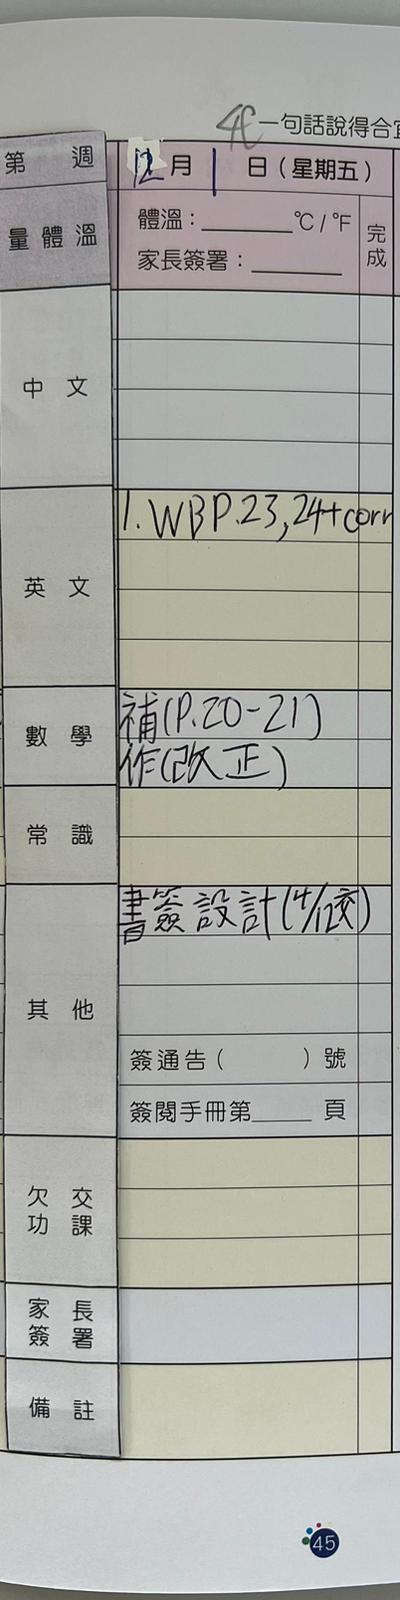 4C
一句話說得合宜
第 週
12月 1 日（星期五）
量體溫
體溫：______°C / °F
完成
家長簽署：______
中 文
英 文
1. WB P.23, 24+corr
數 學
補(P.20-21)
作(改正)
常 識
其 他
書簽設計(4/12交)
簽通告（ ）號
簽閱手冊第____ 頁
欠 交
功 課
家 長
簽 署
備 註
45